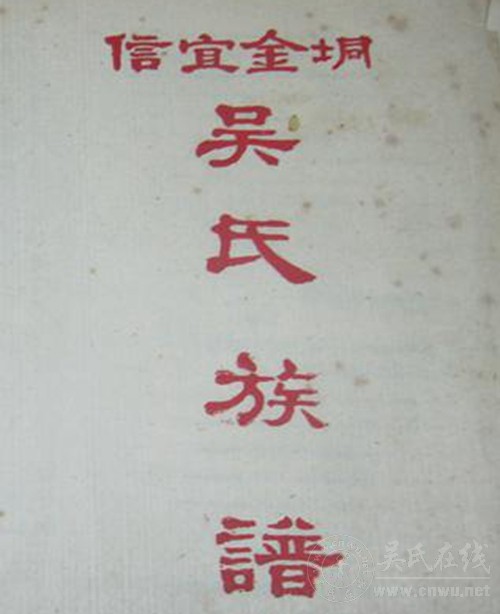 信宜金垌
吴
氏
族
譜
吴氏在线
www.cnwu.net